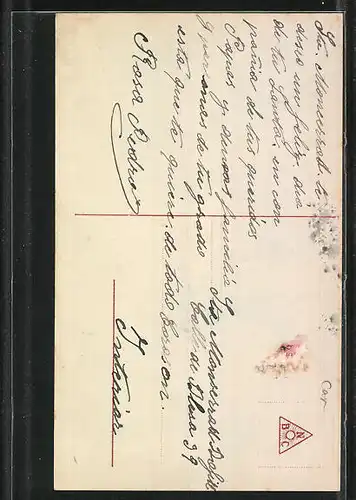 Sta Moncerrat te
deseo un feliz dia
de tu Santa en com
pañia de tus queridos
Papas y demas familia
Y pasarlas de tu grado
esta que te quiere de todo Corason.
Rosa Pedro
Sta Monserrat
Calle Alena 39
Interior
Cor
N
B C